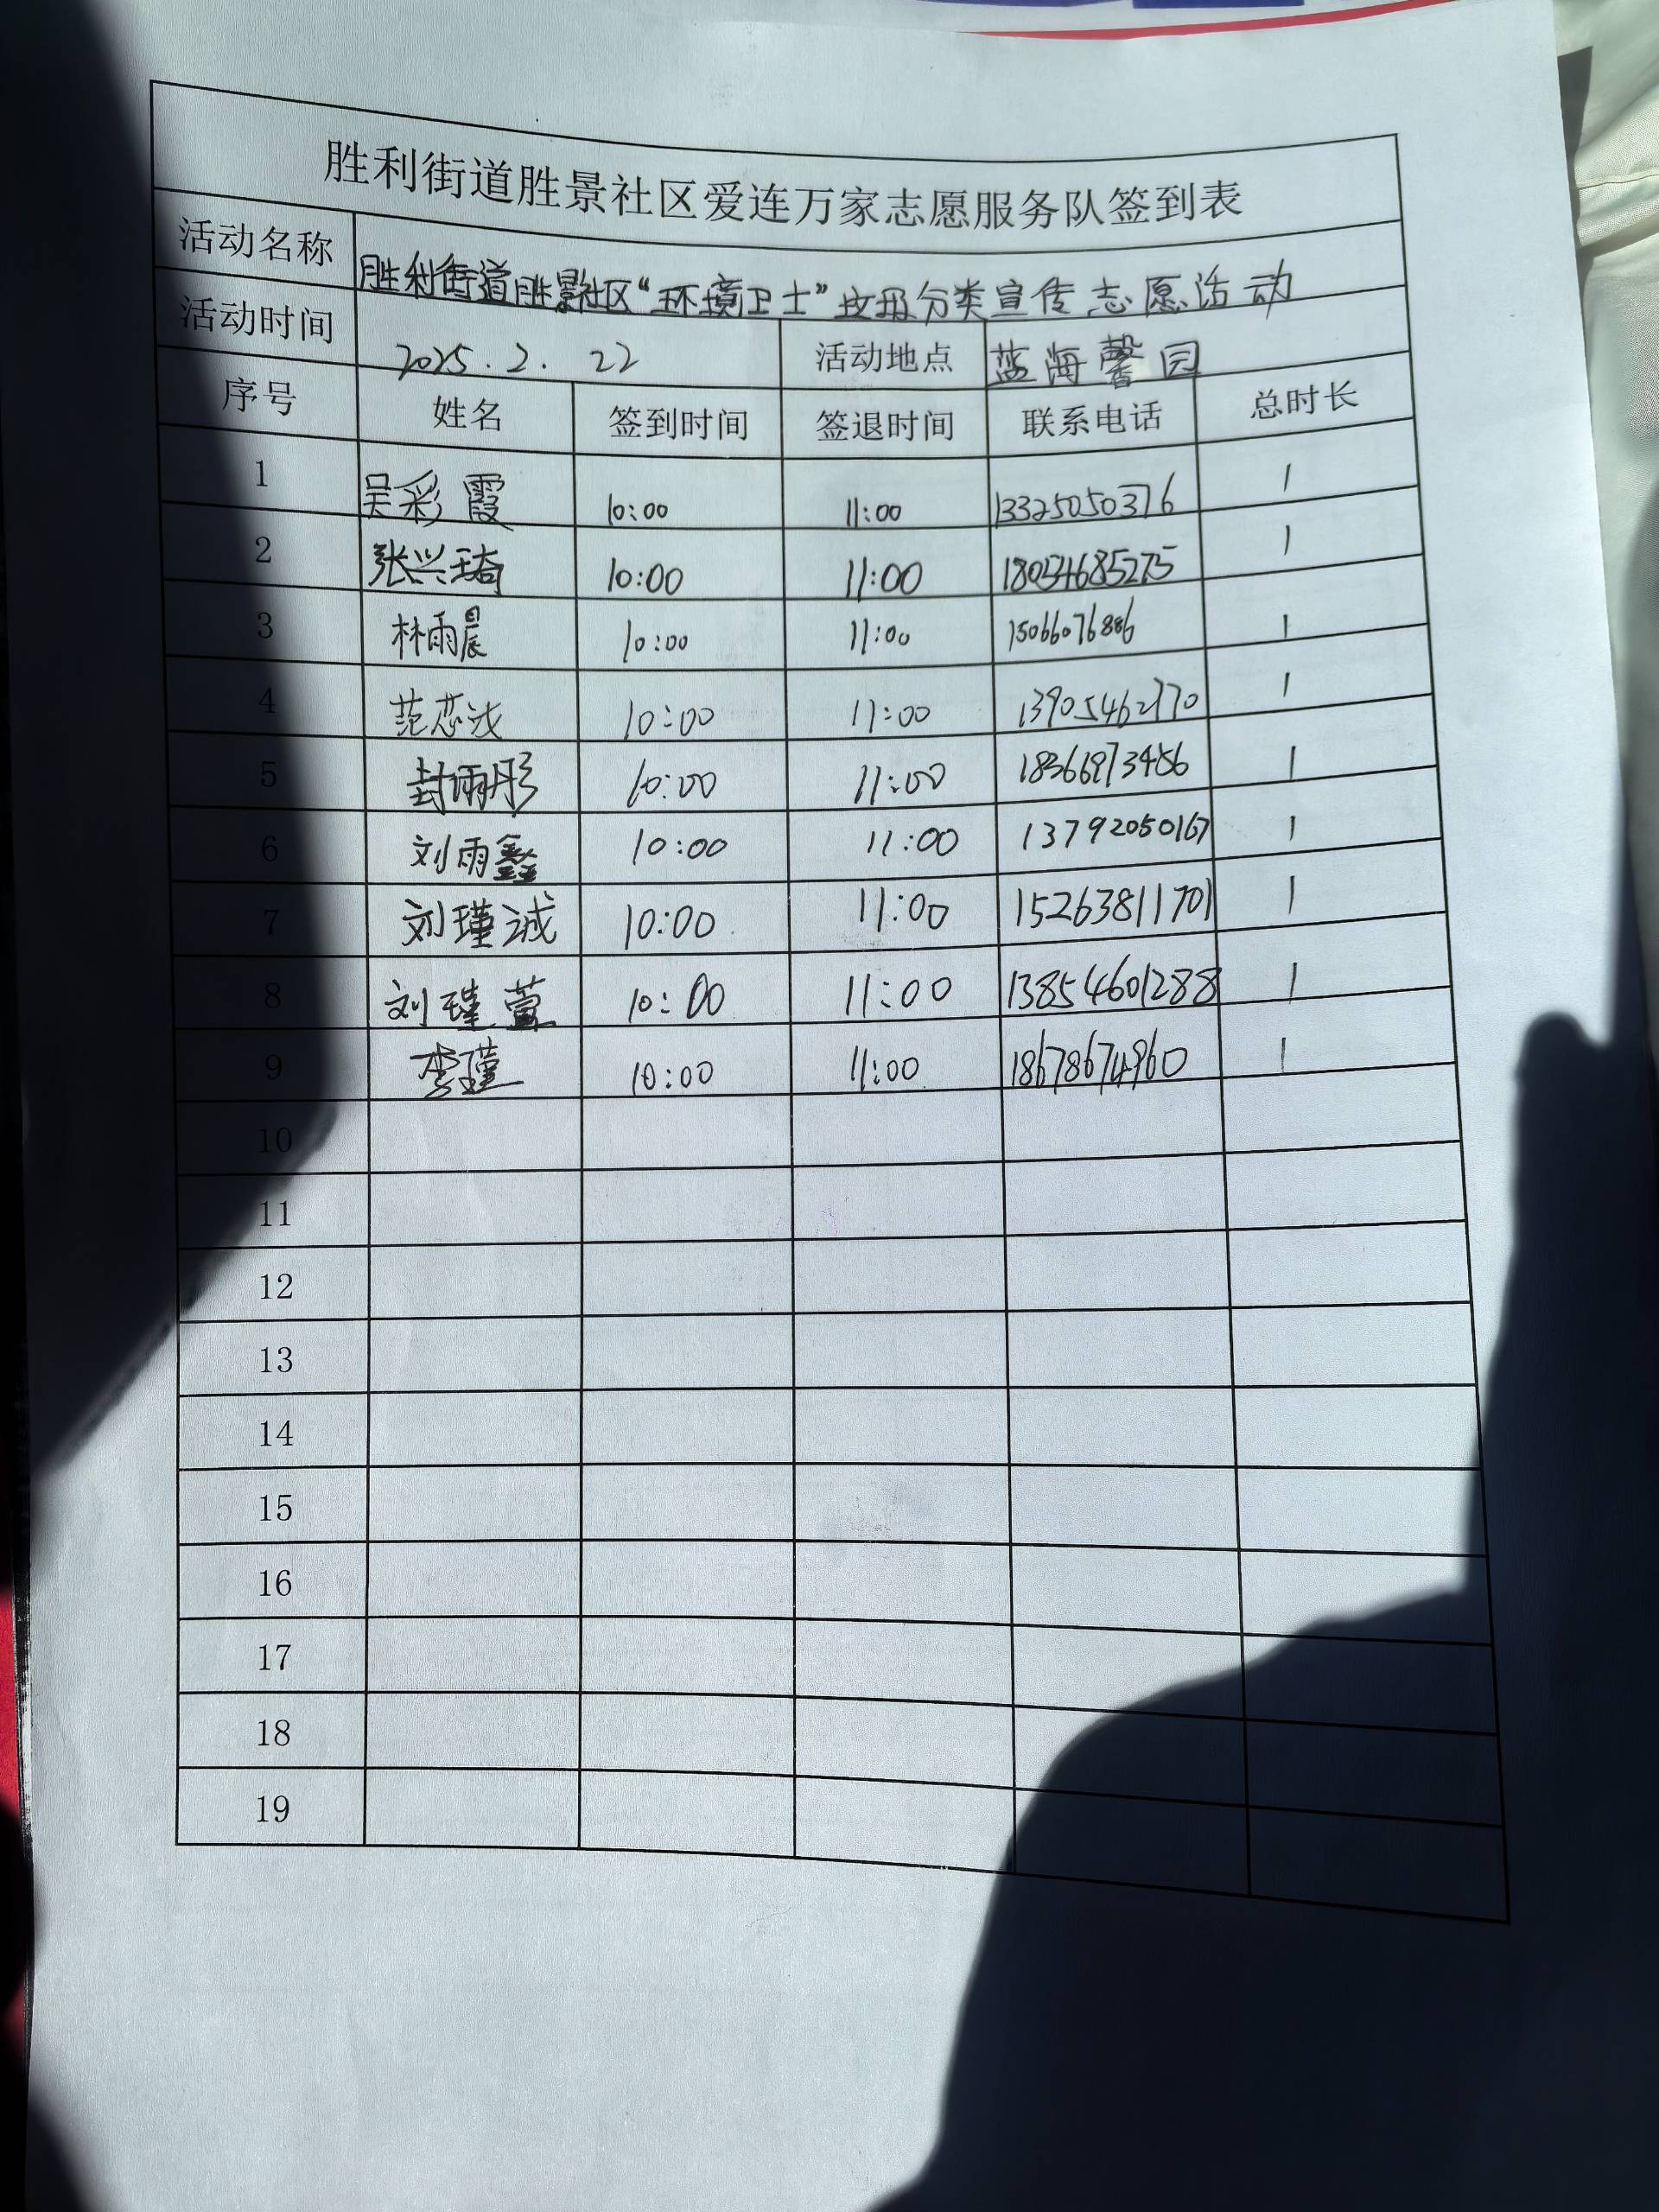 胜利街道胜景社区爱连万家志愿服务队签到表
活动名称 胜利街道胜景社区“环境卫士”垃圾分类宣传志愿活动
活动时间 2025.2.22 活动地点 蓝海馨园
序号 姓名 签到时间 签退时间 联系电话 总时长
1 吴彩霞 10:00 11:00 13325050376 1
2 张兴琦 10:00 11:00 18054685275 1
3 林雨晨 10:00 11:00 15066076886 1
4 范 10:00 11:00 13905462770 1
5 封雨彤 10:00 11:00 18366973486 1
6 刘雨鑫 10:00 11:00 13792050167 1
7 刘瑾诚 10:00 11:00 15263811701 1
8 刘瑾萱 10:00 11:00 13854601288 1
9 李瑾 10:00 11:00 18678674960 1
10
11
12
13
14
15
16
17
18
19